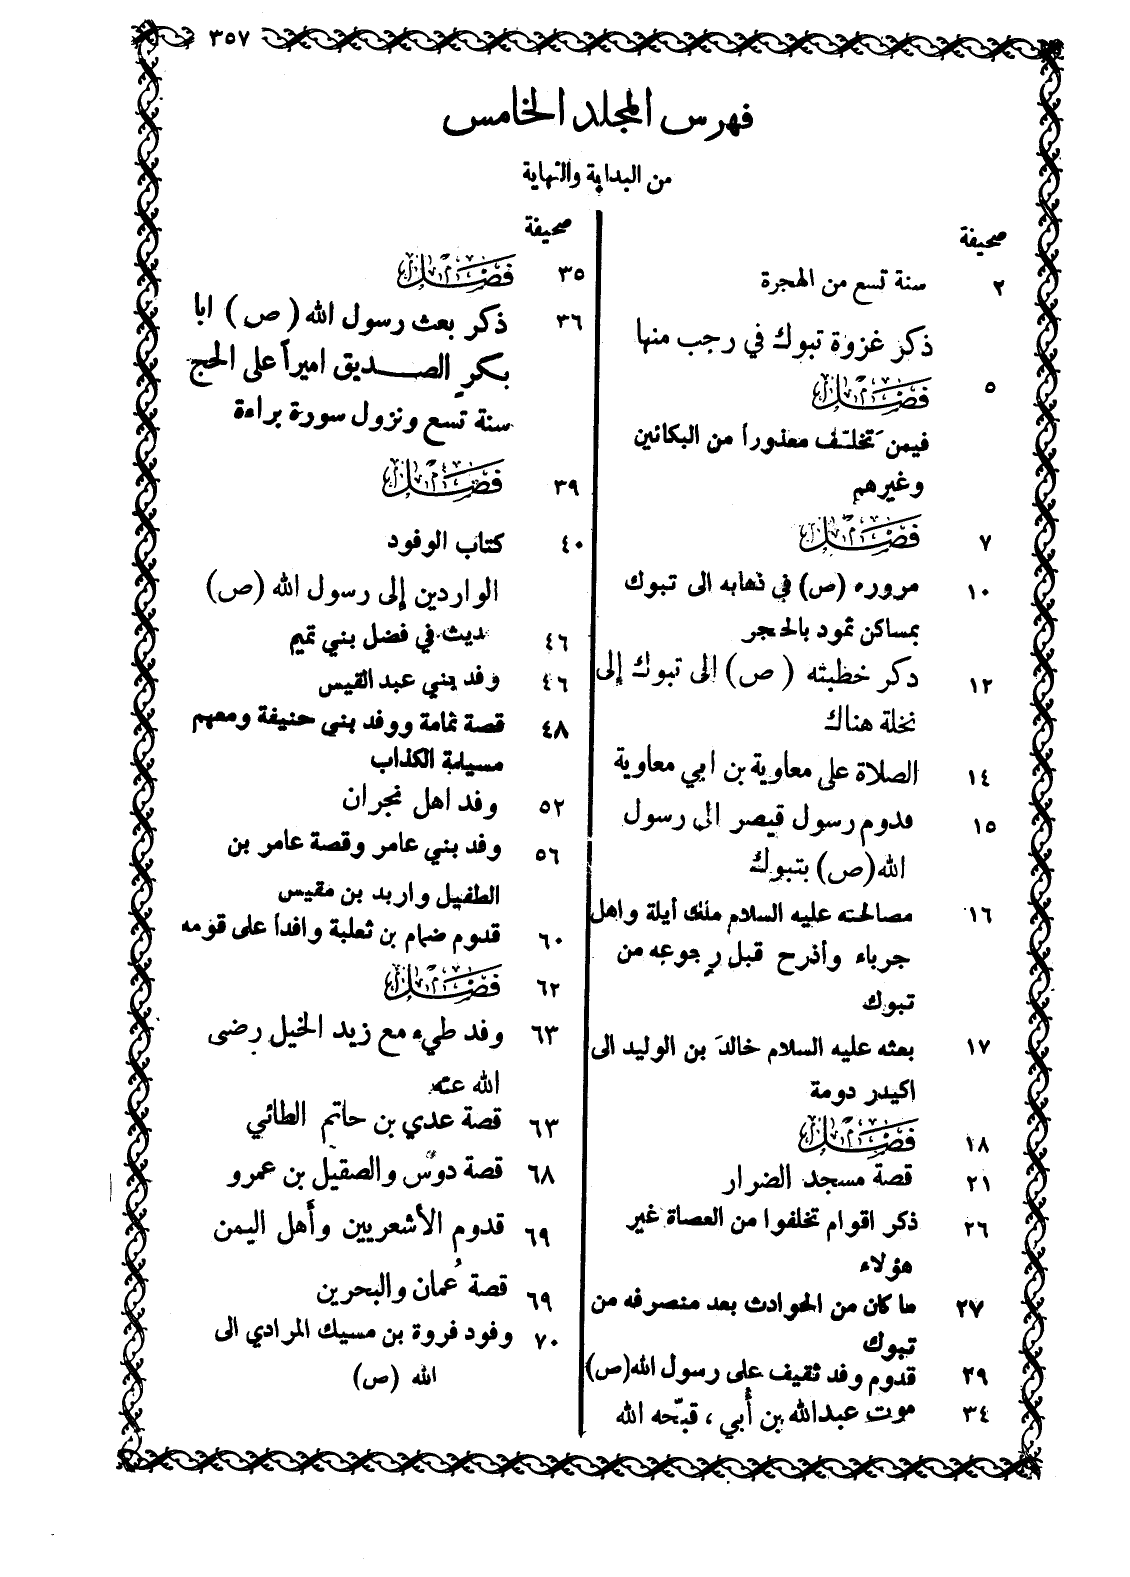 ٣٥٧
فهرس المجلد الخامس
من البداية والنهاية
صحيفة
٢ سنة تسع من الهجرة
ذكر غزوة تبوك في رجب منها
٥ فصل
فيمن تخلف معذوراً من البكائين
وغيرهم
٧ فصل
١٠ مروره (ص) في ذهابه الى تبوك
بمساكن ثمود بالحجر
١٢ ذكر خطبته (ص) إلى تبوك إلى
نخلة هناك
١٤ الصلاة على معاوية بن ابي معاوية
١٥ قدوم رسول قيصر الى رسول
الله (ص) بتبوك
١٦ مصالحته عليه السلام ملك أيلة واهل
جرباء وأذرح قبل رجوعه من
تبوك
١٧ بعثه عليه السلام خالد بن الوليد الى
اكيدر دومة
١٨ فصل
٢١ قصة مسجد الضرار
٢٦ ذكر اقوام تخلفوا من العصاة غير
هؤلاء
٢٧ ما كان من الحوادث بعد منصرفه من
تبوك
٢٩ قدوم وفد ثقيف على رسول الله (ص)
٣٤ موت عبدالله بن أُبي ، قبّحه الله
صحيفة
٣٥ فصل
٣٦ ذكر بعث رسول الله (ص) ابا
بكر الصديق اميراً على الحج
سنة تسع ونزول سورة براءة
٣٩ فصل
٤٠ كتاب الوفود
الواردين إلى رسول الله (ص)
٤٦ حديث في فضل بني تميم
٤٦ وفد بني عبد القيس
٤٨ قصة ثمامة ووفد بني حنيفة ومعهم
مسيلمة الكذاب
٥٢ وفد اهل نجران
٥٦ وفد بني عامر وقصة عامر بن
الطفيل واربد بن مقيس
٦٠ قدوم ضمام بن ثعلبة وافداً على قومه
٦٢ فصل
٦٣ وفد طيء مع زيد الخيل رضى
الله عنه
٦٣ قصة عدي بن حاتم الطائي
٦٨ قصة دوس والصقيل بن عمرو
٦٩ قدوم الأشعريين وأهل اليمن
٦٩ قصة عُمان والبحرين
٧٠ وفود فروة بن مسيك المرادي الى
الله (ص)